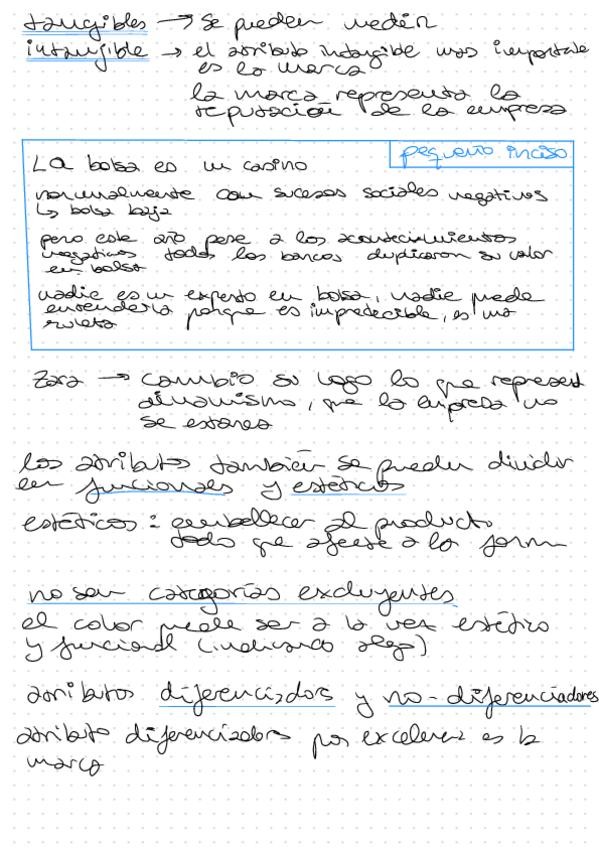 tangibles → se pueden medir
intangible → el atributo intangible mas importante
es la marca
la marca representa la
reputación de la empresa
pequeño inciso
La bolsa es un casino
normalmente con sucesos sociales negativos
↳ bolsa baja
pero este año pese a los acontecimientos
negativos todos los bancos duplicaron su valor
en bolsa
nadie es un experto en bolsa, nadie puede
entenderla porque es impredecible, es una
ruleta
Zara → cambio su logo lo que represent
dinamismo, que la empresa no
se estanca
los atributos también se pueden dividir
en funcionales y estéticos
estéticos: embellecer al producto
todo que afecte a la forma
no son categorías excluyentes
el color puede ser a la vez estético
y funcional (indicando algo)
atributos diferenciadors y no-diferenciadores
atributo diferenciadors por excelencia es la
marca